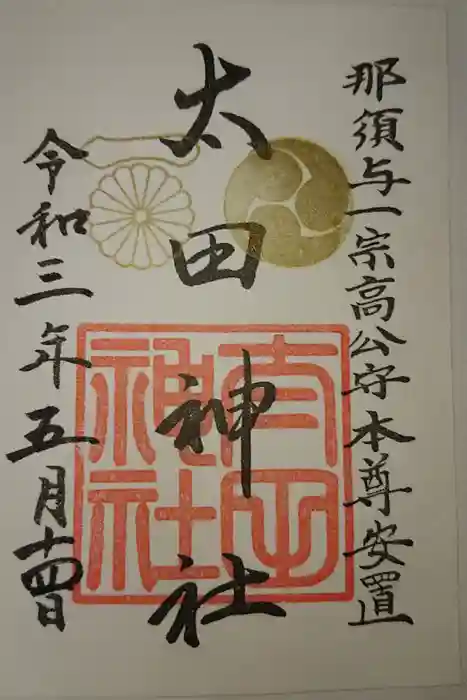 那須与一宗高公守本尊安置
太田神社
令和三年五月十四日
太田神社